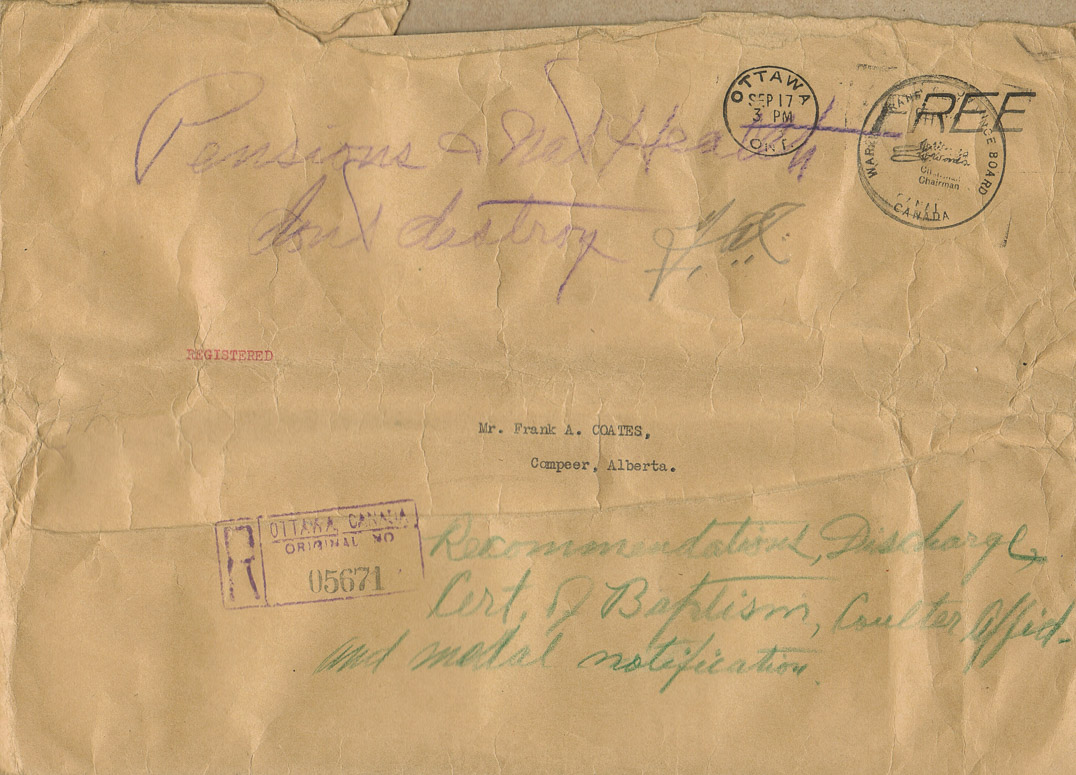 OTTAWA
SEP 17
3 PM
ONT.
FREE
BOARD
Chairman
CANADA
Pensions & Nat Health
don't destroy
REGISTERED
Mr. Frank A. COATES,
Compeer, Alberta.
R
OTTAWA, CANADA
ORIGINAL NO
05671
Recommendations, Discharge,
Cert. of Baptism, Coulter Affid-
and medal notification.